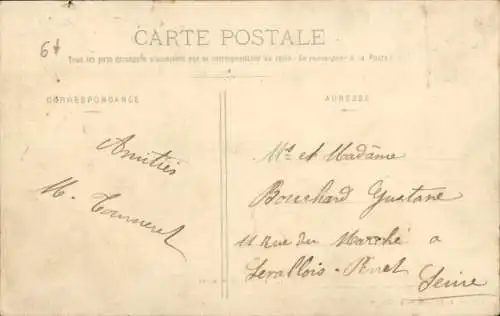 6f
CARTE POSTALE
Tous les pays étrangers n'acceptent pas la correspondance au recto. (Se renseigner à la Poste)
CORRESPONDANCE
ADRESSE
Amitiés
M. Tourneret
Mr et Madame
Bouchard Gustave
11 Rue du Marché a
Levallois-Perret
Seine